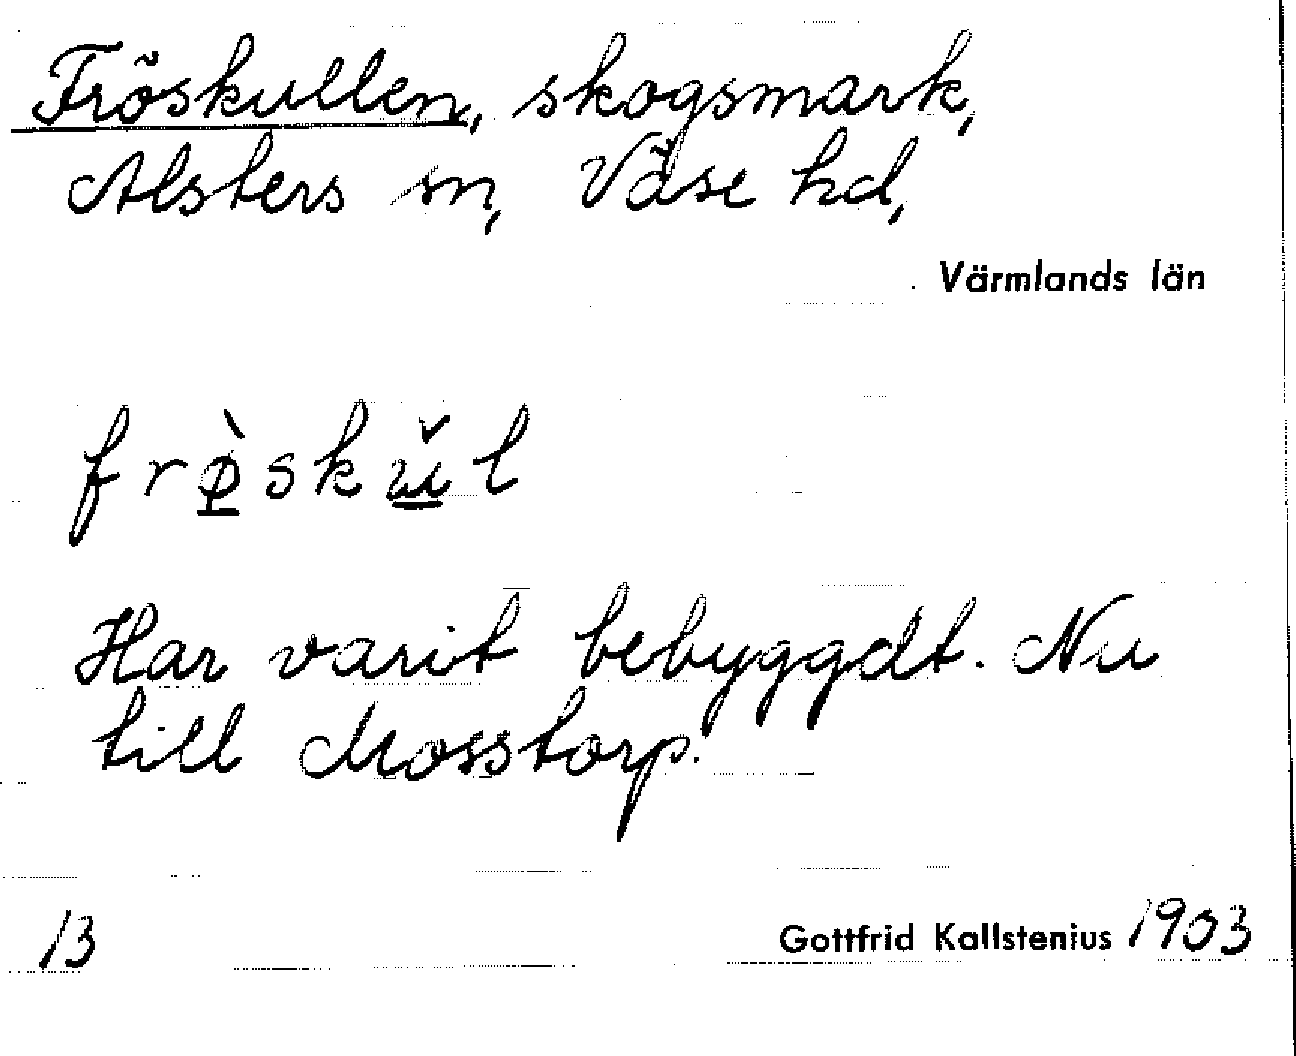 Fröskullen, skogsmark,
Alsters sn, Väse hd,
Värmlands län
frø̀skŭl
Har varit bebyggdt. Nu
till Mosstorp.
13
Gottfrid Kallstenius 1903